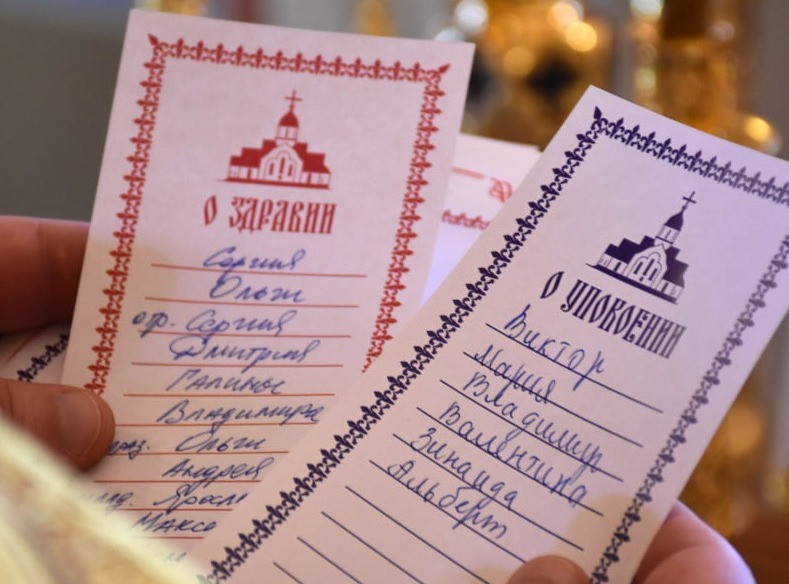 О ЗДРАВИИ
Сергия
Ольги
отр. Сергия
Димитрия
Галины
Владимира
Ольги
Андрея
О УПОКОЕНИИ
Виктор
Мария
Владимир
Валентина
Зинаида
Альберт